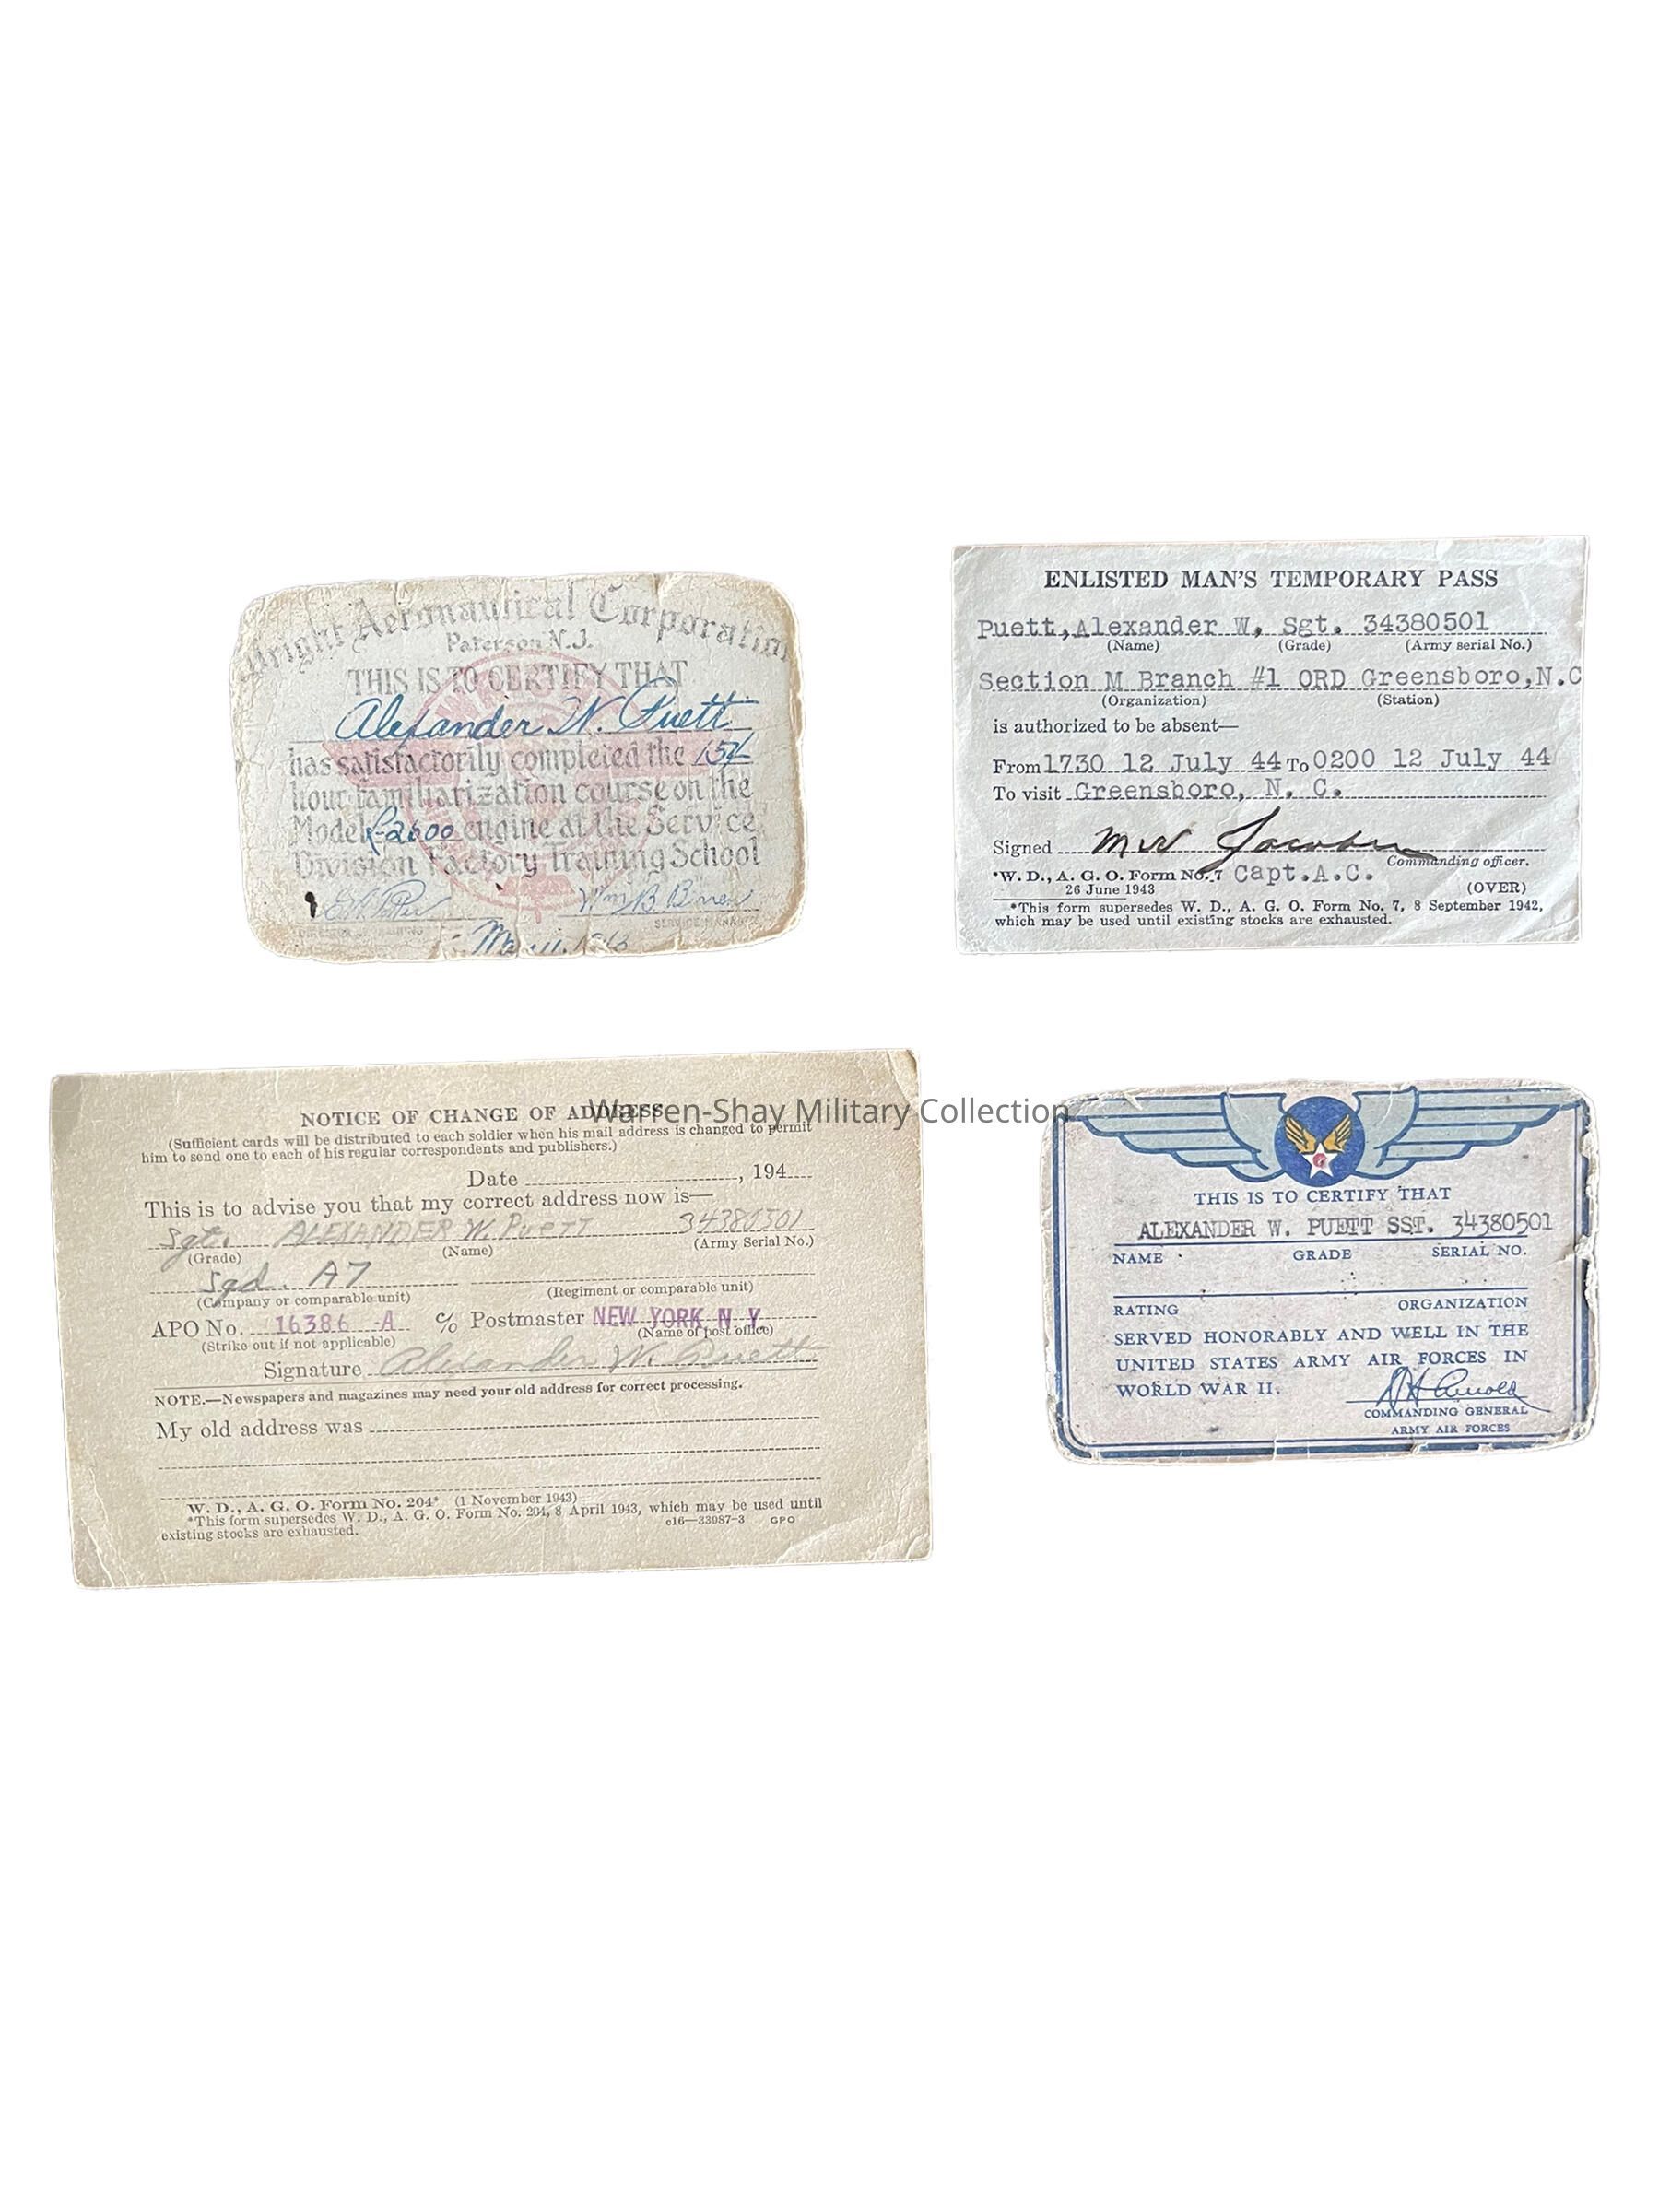 Wright Aeronautical Corporation
Paterson N.J.
THIS IS TO CERTIFY THAT
Alexander W. Puett
has satisfactorily completed the 154
hour familiarization course on the
Model R-2600 engine at the Service
Division Factory Training School
Wm B
SERVICE MANAGER
ENLISTED MAN'S TEMPORARY PASS
Puett, Alexander W, Sgt. 34380501
(Name) (Grade) (Army serial No.)
Section M Branch #1 ORD Greensboro, N.C
(Organization) (Station)
is authorized to be absent—
From 1730 12 July 44 To 0200 12 July 44
To visit Greensboro, N. C.
Signed
Commanding officer.
*W. D., A. G. O. Form No. 7 Capt. A.C.
26 June 1943 (OVER)
*This form supersedes W. D., A. G. O. Form No. 7, 8 September 1942,
which may be used until existing stocks are exhausted.
Warren-Shay Military Collection
NOTICE OF CHANGE OF ADDRESS
(Sufficient cards will be distributed to each soldier when his mail address is changed to permit
him to send one to each of his regular correspondents and publishers.)
Date , 194
This is to advise you that my correct address now is—
Sgt. ALEXANDER W. PUETT 34380501
(Grade) (Name) (Army Serial No.)
Sqd. A7
(Company or comparable unit) (Regiment or comparable unit)
APO No. 16386 -A c/o Postmaster NEW YORK, N. Y.
(Strike out if not applicable) (Name of post office)
Signature Alexander W. Puett
NOTE.—Newspapers and magazines may need your old address for correct processing.
My old address was
W. D., A. G. O. Form No. 204* (1 November 1943)
*This form supersedes W. D., A. G. O. Form No. 204, 8 April 1943, which may be used until
existing stocks are exhausted. c16—33987-3 GPO
THIS IS TO CERTIFY THAT
ALEXANDER W. PUETT SST. 34380501
NAME GRADE SERIAL NO.
RATING ORGANIZATION
SERVED HONORABLY AND WELL IN THE
UNITED STATES ARMY AIR FORCES IN
WORLD WAR II. H H Arnold
COMMANDING GENERAL
ARMY AIR FORCES